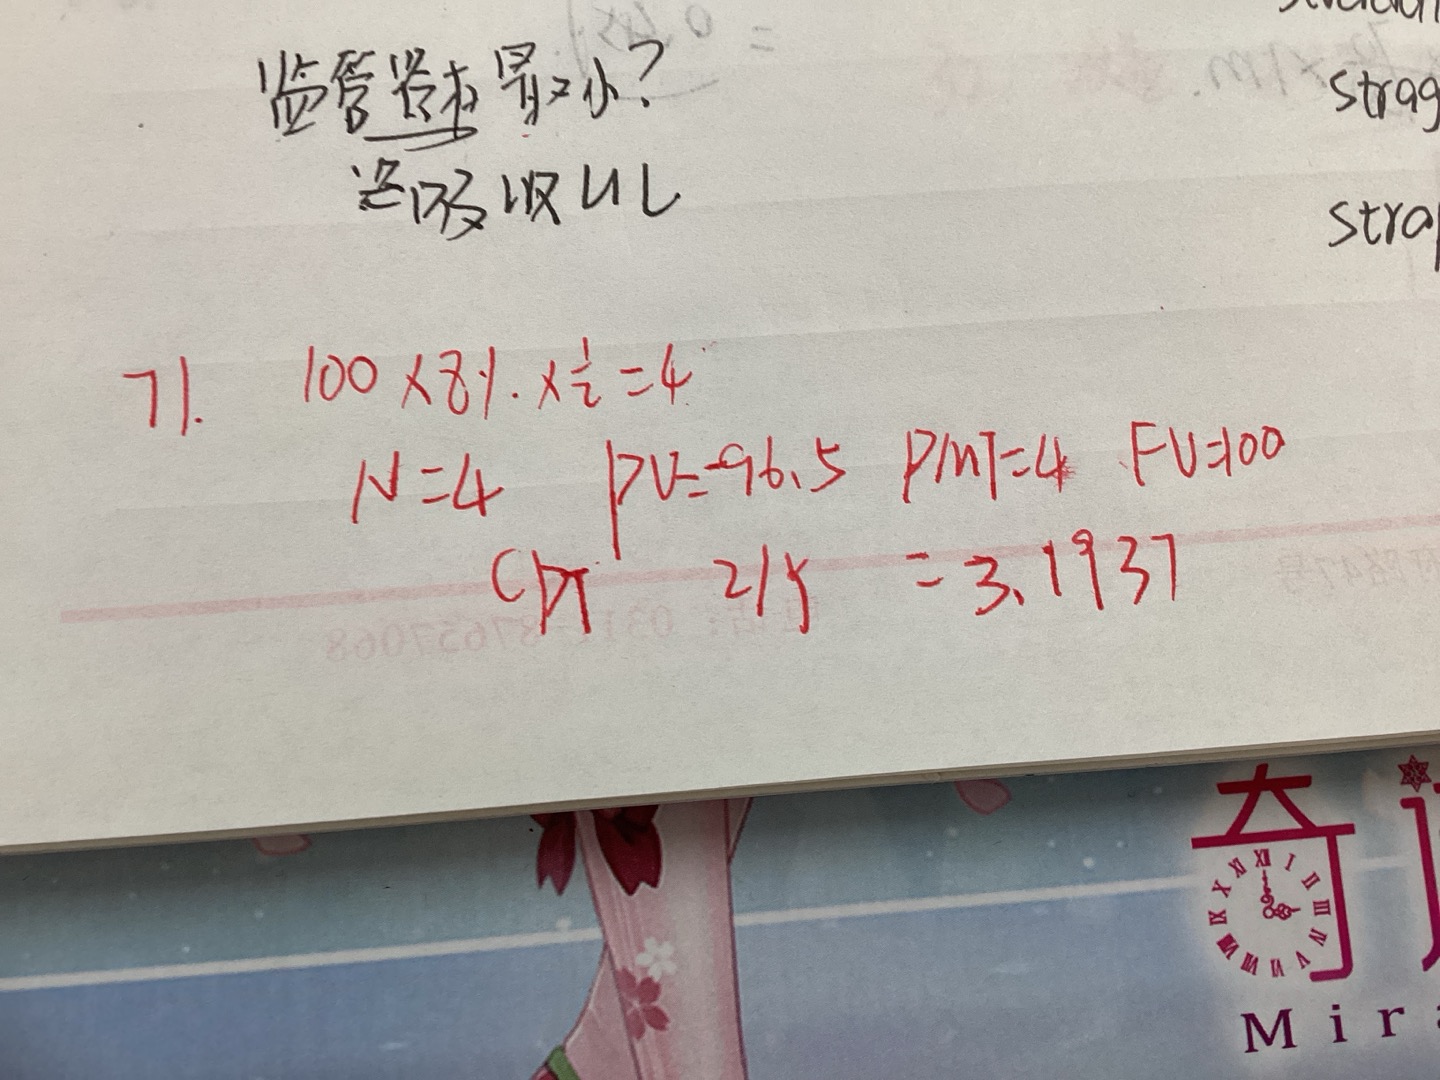 监管资本最小?
吸收UL
strag
stra
71. 100 × 8% × 1/2 = 4
N=4 PV=-96.5 PMT=4 FV=100
CPT I/Y = 3.1937
奇
Mir